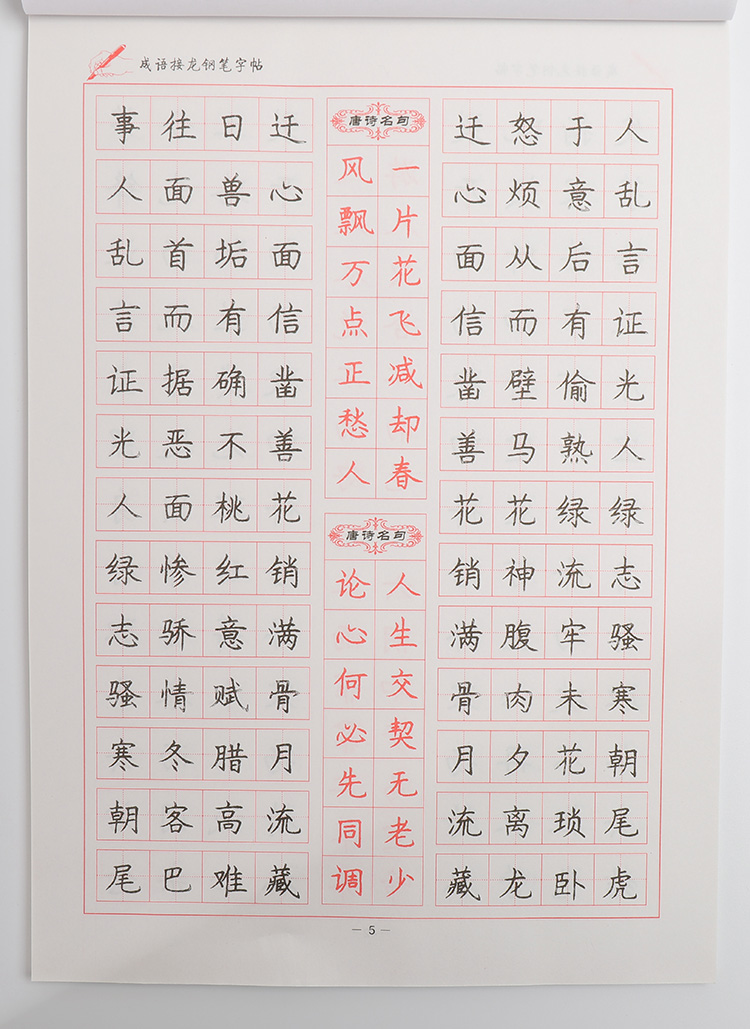 成语接龙钢笔字帖
事往日迁
迁怒于人
人面兽心
心烦意乱
乱首垢面
面从后言
言而有信
信而有证
证据确凿
凿壁偷光
光恶不善
善马熟人
人面桃花
花花绿绿
绿惨红销
销神流志
志骄意满
满腹牢骚
骚情赋骨
骨肉未寒
寒冬腊月
月夕花朝
朝客高流
流离琐尾
尾巴难藏
藏龙卧虎
唐诗名句
一片花飞减却春
风飘万点正愁人
唐诗名句
人生交契无老少
论心何必先同调
— 5 —